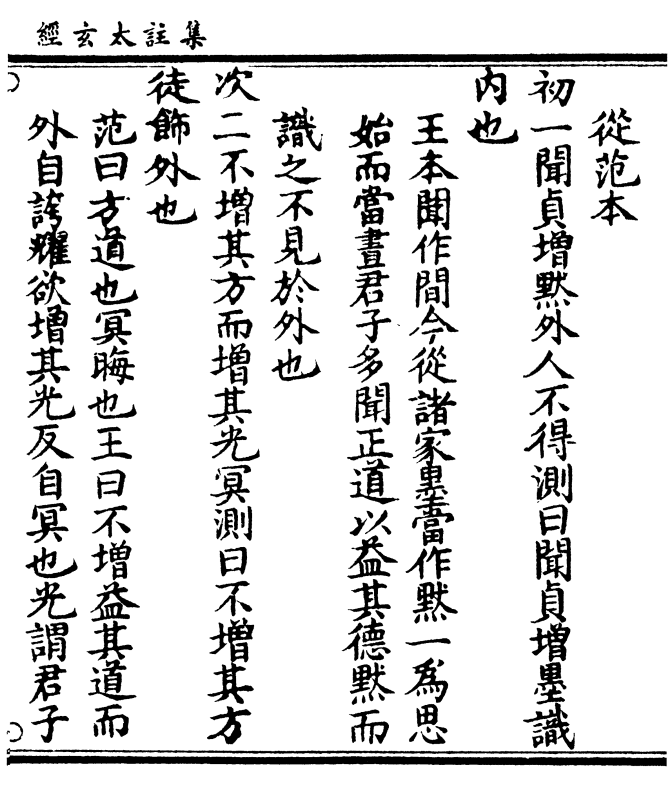 集註太玄經
從范本
初一聞貞增默外人不得測曰聞貞增墨識
内也
王本聞作間今從諸家墨當作默一爲思
始而當晝君子多聞正道以益其德默而
識之不見於外也
次二不增其方而增其光冥測曰不增其方
徒飾外也
范曰方道也冥晦也王曰不增益其道而
外自誇耀欲增其光反自冥也光謂君子